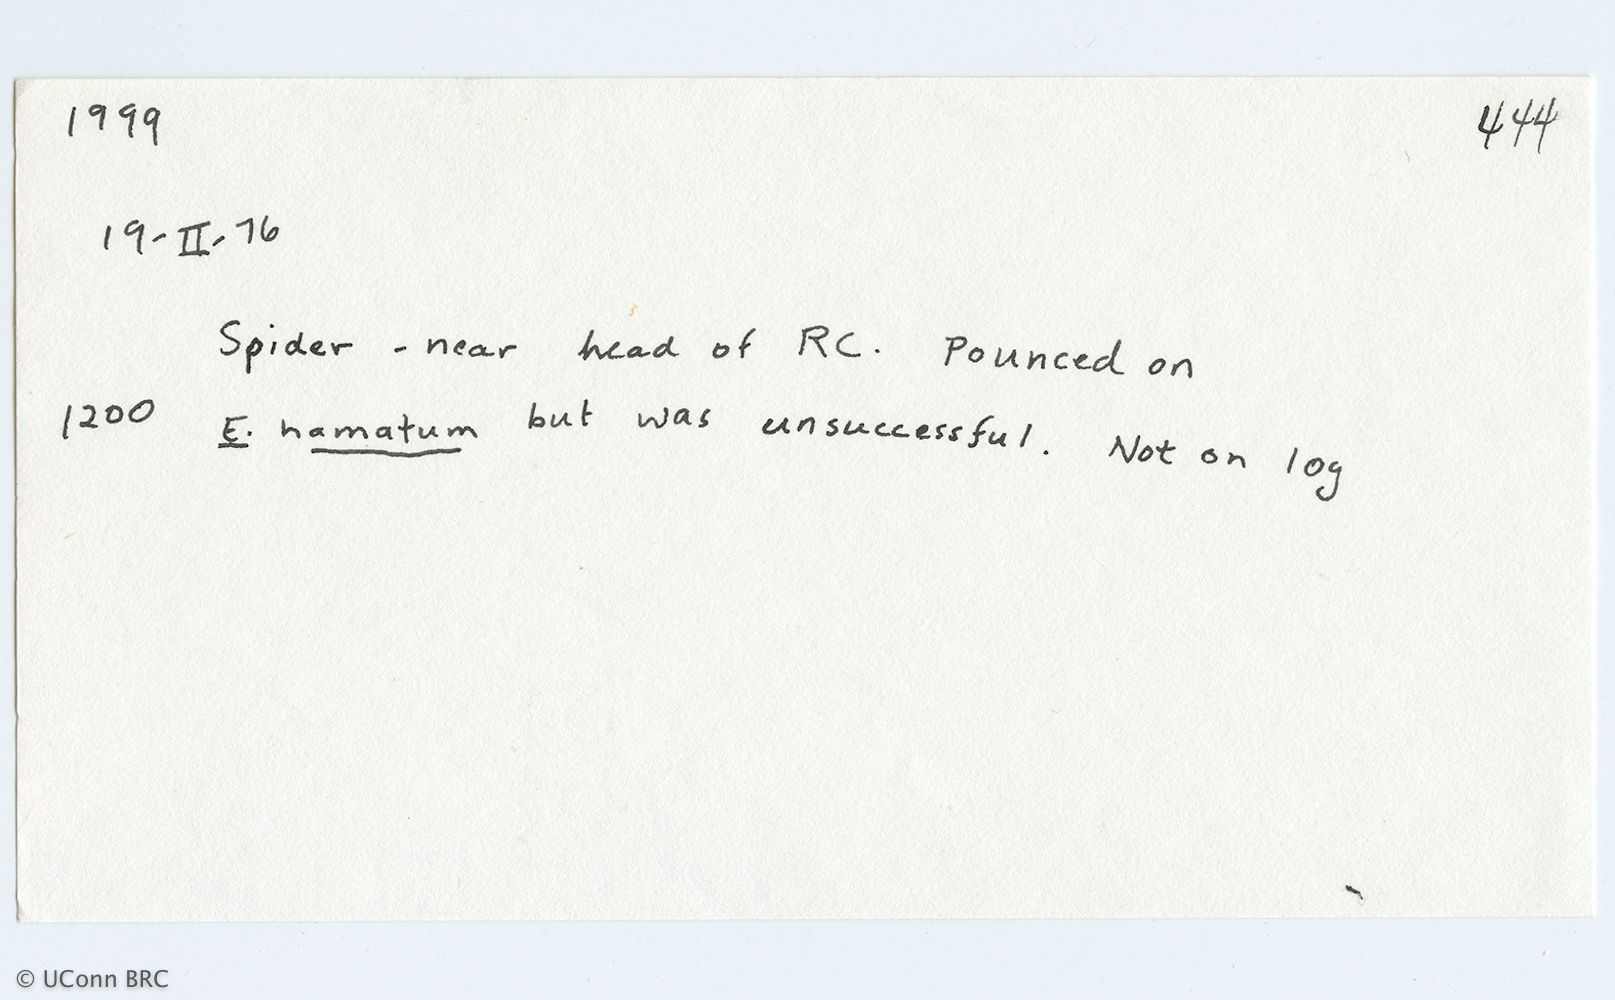 1999 444
19-II-76
Spider - near head of RC. Pounced on
1200 E. hamatum but was unsuccessful. Not on log
© UConn BRC